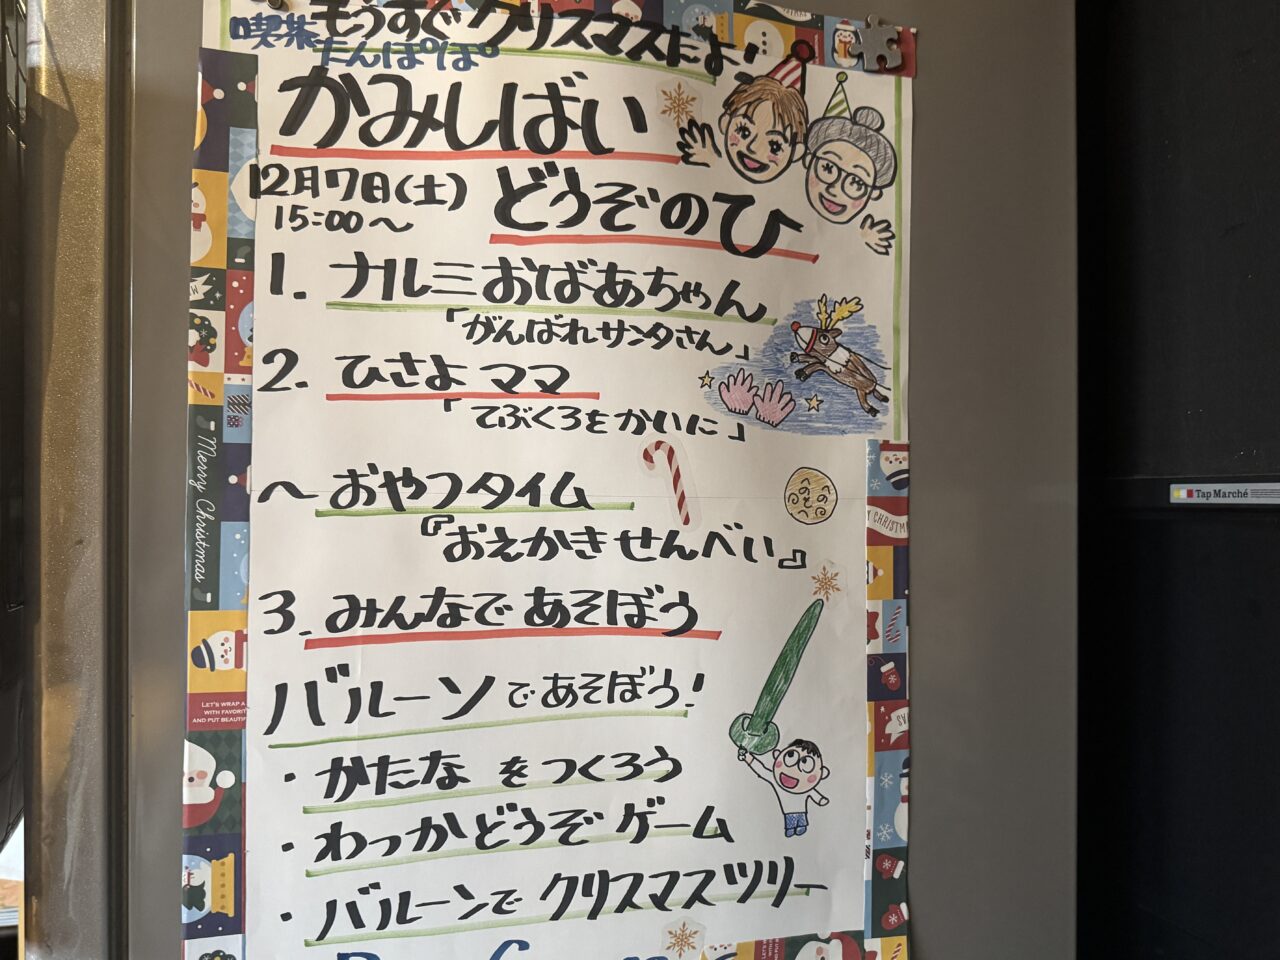 もうすぐクリスマスだよ!
喫茶
たんぽぽ
かみしばい
12月7日(土)
15:00〜
どうぞのひ
1. ナルミおばあちゃん
「がんばれサンタさん」
2. ひさよママ
「てぶくろをかいに」
〜おやつタイム
『おえかきせんべい』
へのへのもへ
3. みんなであそぼう
バルーンであそぼう!
・かたなをつくろう
・わっかどうぞゲーム
・バルーンでクリスマスツリー
Merry Christmas
LET'S WRAP A
WITH FAVORIT
AND PUT BEAUTIF
Y CHRISTM
Tap Marché